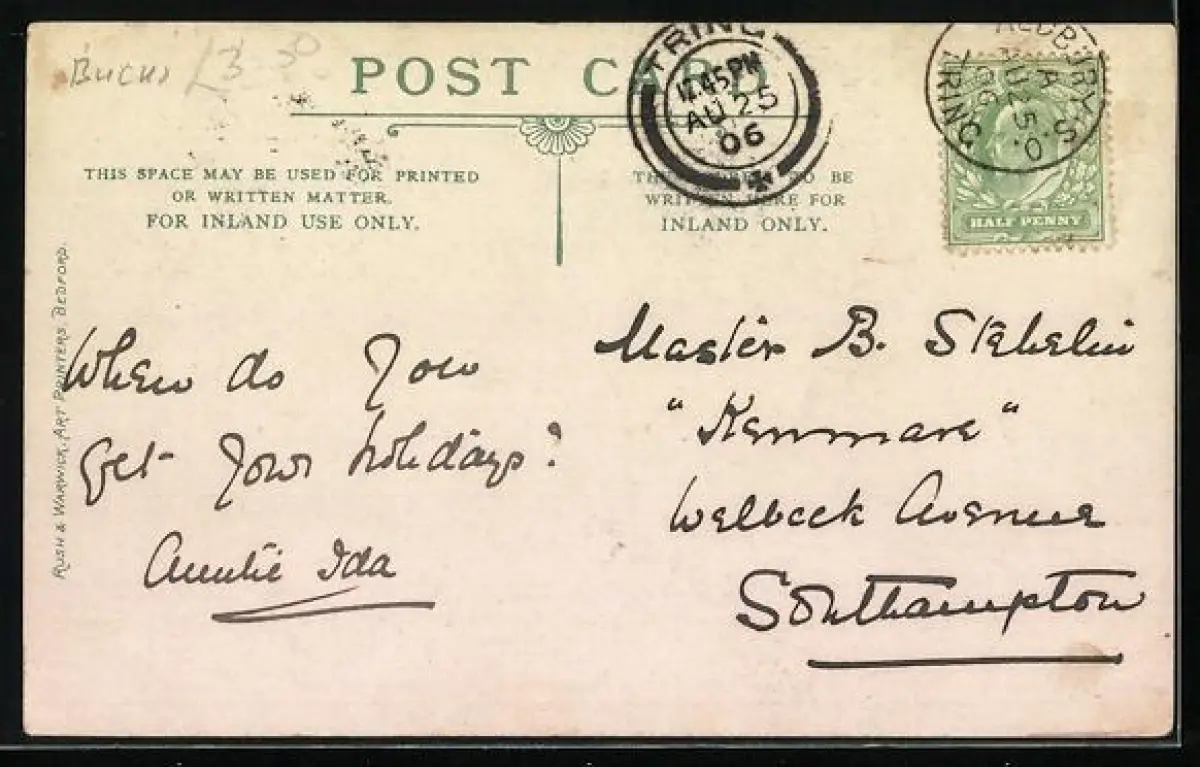 Bucks £3-50
POST CARD
TRING
12.45 PM
AU 25
06
ALDBURY.S.O
TRING
A
AU 25
06
THIS SPACE MAY BE USED FOR PRINTED
OR WRITTEN MATTER.
FOR INLAND USE ONLY.
TO BE
WRITTEN HERE FOR
INLAND ONLY.
HALF PENNY
RUSH & WARWICK, ART PRINTERS BEDFORD.
When do you
get your holidays?
Auntie Ida
Master B. Stehelin
"Kenmare"
Welbeck Avenue
Southampton